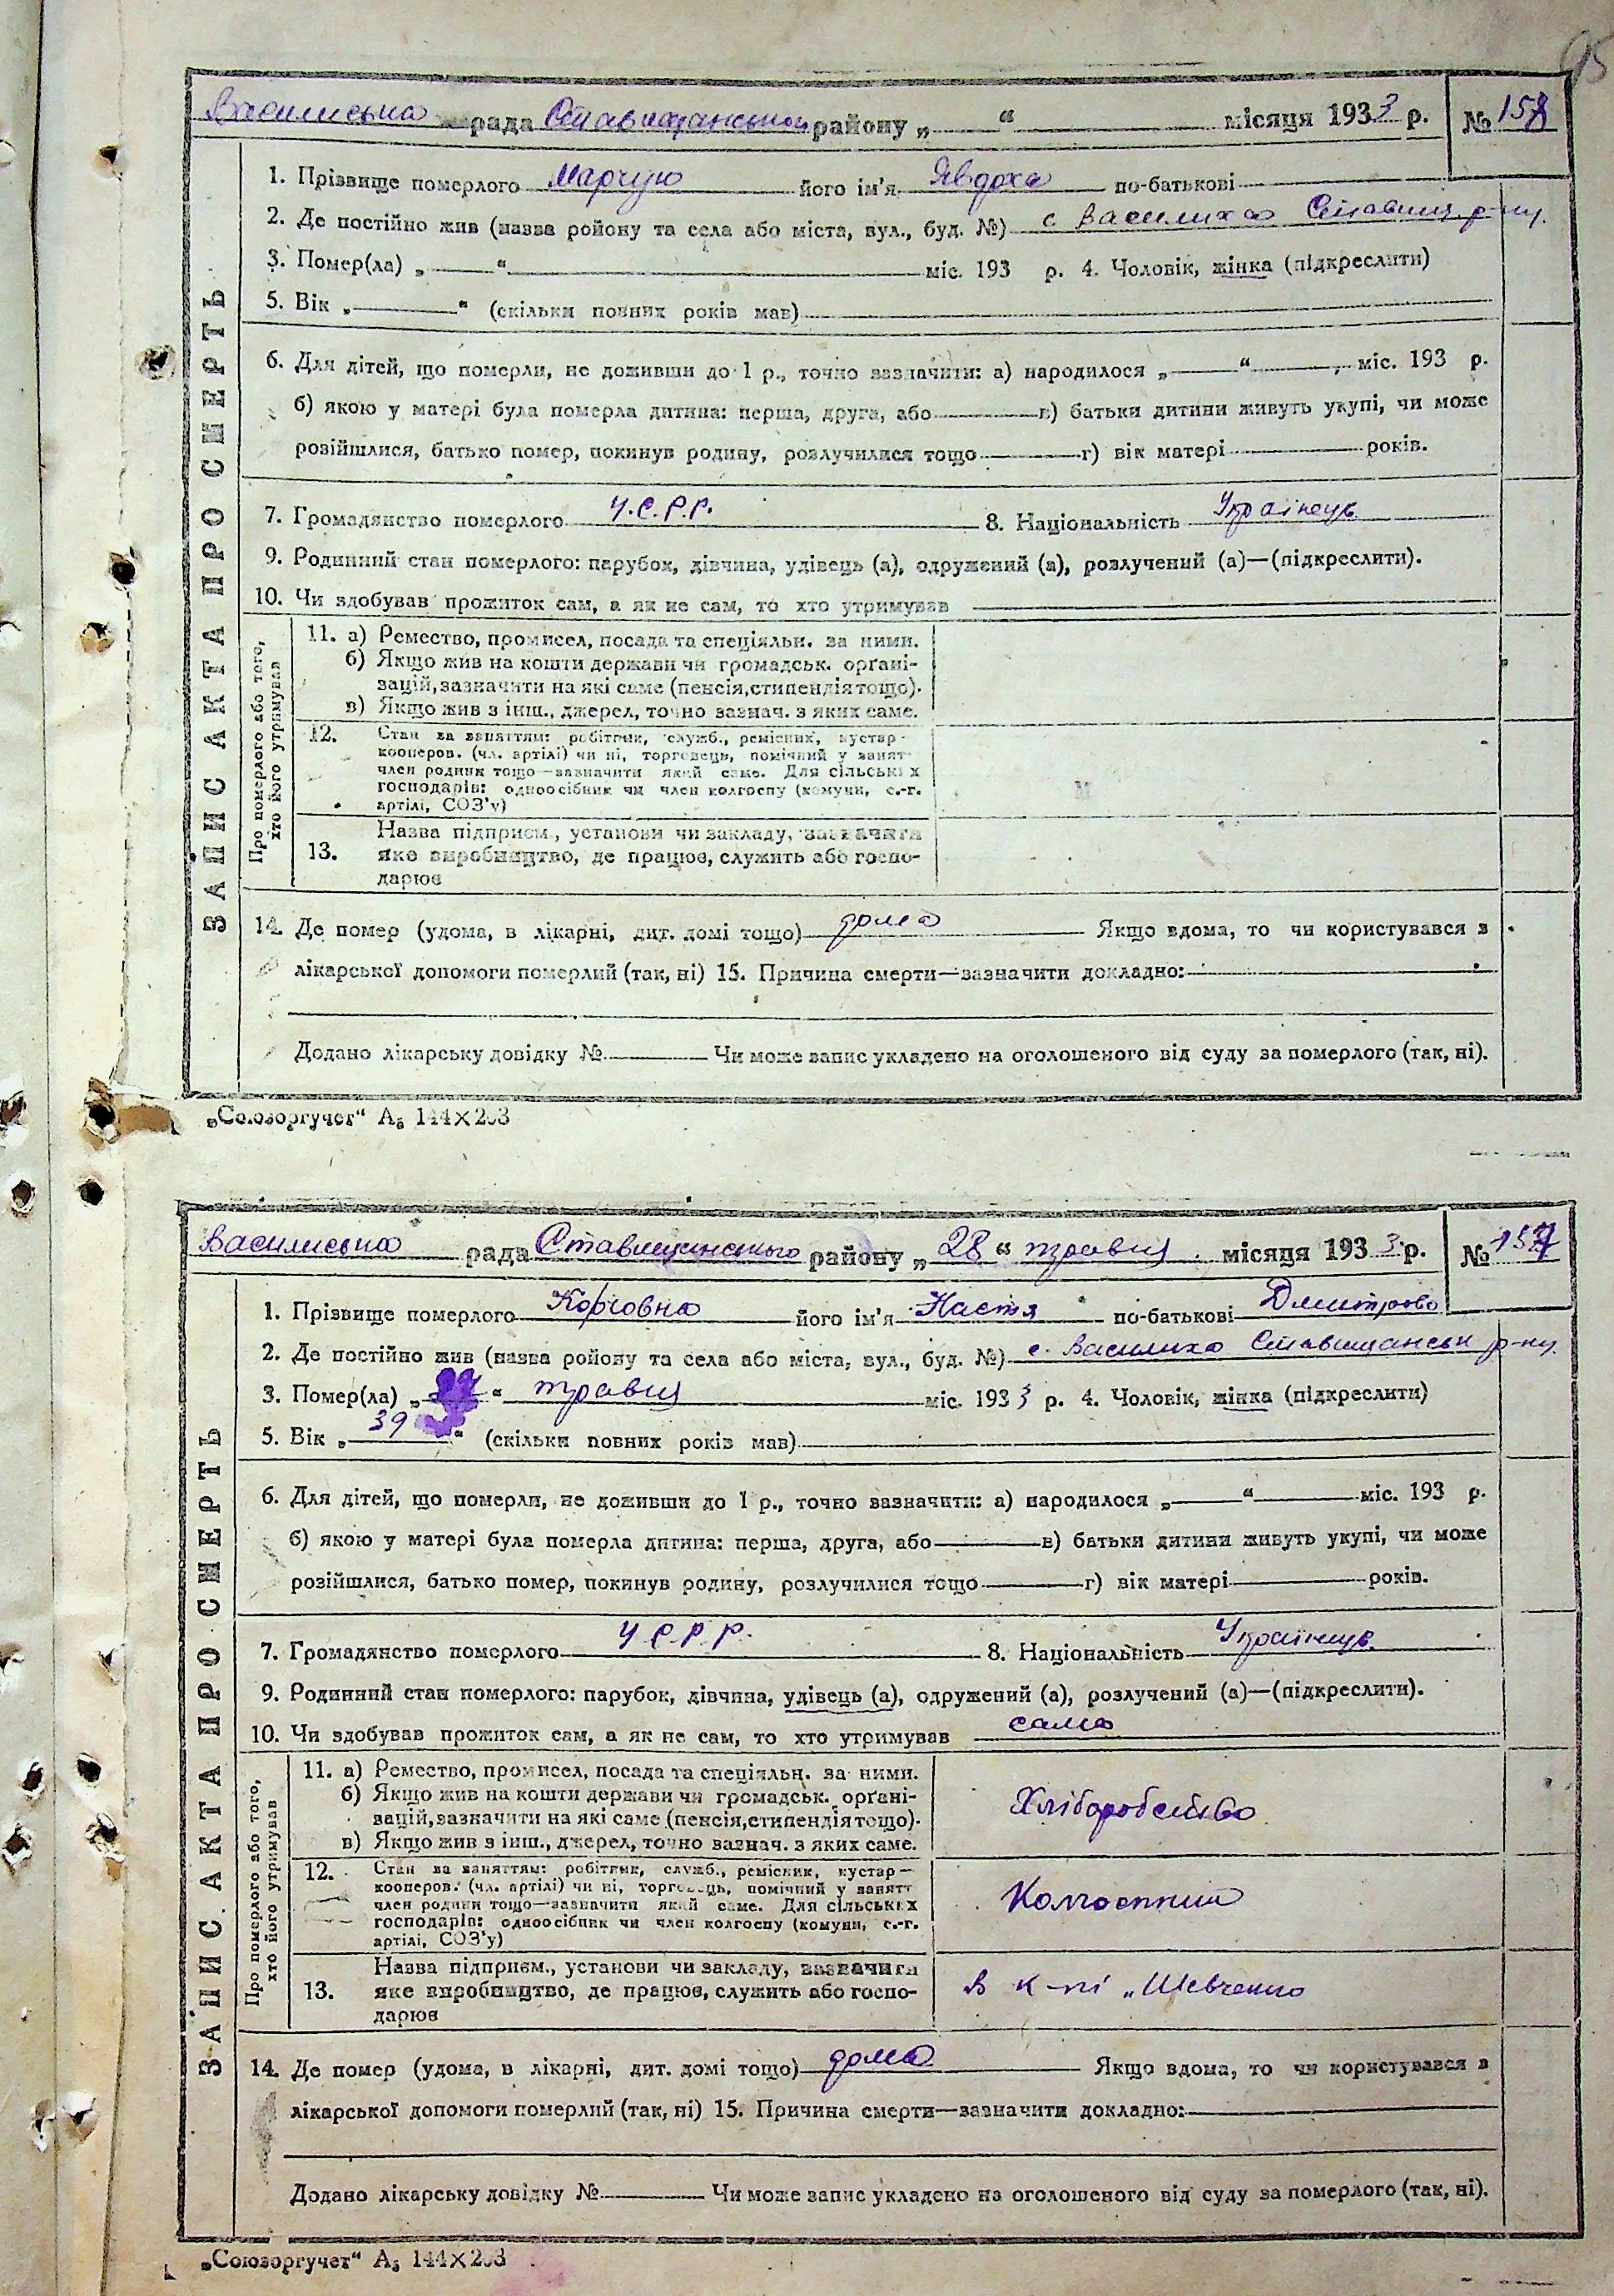 95
Василиська рада Ставищанського району „ “ місяця 1933 р. № 158
ЗАПИС АКТА ПРО СМЕРТЬ
1. Прізвище померлого Марчук його ім'я Явдоха по-батькові
2. Де постійно жив (назва району та села або міста, вул., буд. №) с Василиха Ставищ р-ну.
3. Помер(ла) „ “ міс. 193 р. 4. Чоловік, жінка (підкреслити)
5. Вік „ “ (скільки повних років мав)
6. Для дітей, що померли, не доживши до 1 р., точно зазначити: а) народилося „ “ міс. 193 р.
б) якою у матері була померла дитина: перша, друга, або в) батьки дитини живуть укупі, чи може
розійшлися, батько помер, покинув родину, розлучилися тощо г) вік матері років.
7. Громадянство померлого У.С.Р.Р. 8. Національність Українець
9. Родинний стан померлого: парубок, дівчина, удівець (а), одружений (а), розлучений (а)—(підкреслити).
10. Чи здобував прожиток сам, а як не сам, то хто утримував
Про померлого або того,
хто його утримував
11. а) Ремество, промисел, посада та спеціяльн. за ними.
б) Якщо жив на кошти держави чи громадськ. орґані-
зацій, зазначити на які саме (пенсія, стипендія тощо).
в) Якщо жив з інш., джерел, точно зазнач. з яких саме.
12. Стан за заняттям: робітник, служб., ремісник, кустар-
кооперов. (чл. артілі) чи ні, торговець, помічний у занятт
член родини тощо—зазначити який саме. Для сільських
господарів: одноосібник чи член колгоспу (комуни, с.-г.
артілі, СОЗ'у)
Назва підприєм., установи чи закладу, зазначити
13. яке виробництво, де працює, служить або госпо-
дарює
14. Де помер (удома, в лікарні, дит. домі тощо) дома Якщо вдома, то чи користувався з
лікарської допомоги померлий (так, ні) 15. Причина смерти—зазначити докладно:
Додано лікарську довідку № Чи може запис укладено на оголошеного від суду за померлого (так, ні).
„Союзоргучет“ А₅ 144×203
Василиська рада Ставищанського району „28“ травня місяця 1933 р. № 157
ЗАПИС АКТА ПРО СМЕРТЬ
1. Прізвище померлого його ім'я Настя по-батькові Дмитрова
2. Де постійно жив (назва району та села або міста, вул., буд. №) с. Василиха Ставищанськ р-ну.
3. Помер(ла) „ “ травня міс. 1933 р. 4. Чоловік, жінка (підкреслити)
5. Вік „39“ (скільки повних років мав)
6. Для дітей, що померли, не доживши до 1 р., точно зазначити: а) народилося „ “ міс. 193 р.
б) якою у матері була померла дитина: перша, друга, або в) батьки дитини живуть укупі, чи може
розійшлися, батько помер, покинув родину, розлучилися тощо г) вік матері років.
7. Громадянство померлого У С.Р.Р. 8. Національність Українець
9. Родинний стан померлого: парубок, дівчина, удівець (а), одружений (а), розлучений (а)—(підкреслити).
10. Чи здобував прожиток сам, а як не сам, то хто утримував сама
Про померлого або того,
хто його утримував
11. а) Ремество, промисел, посада та спеціяльн. за ними.
б) Якщо жив на кошти держави чи громадськ. орґані-
зацій, зазначити на які саме (пенсія, стипендія тощо).
в) Якщо жив з інш., джерел, точно зазнач. з яких саме.
Хліборобство
12. Стан за заняттям: робітник, служб., ремісник, кустар-
кооперов. (чл. артілі) чи ні, торговець, помічний у занятт
член родини тощо—зазначити який саме. Для сільських
господарів: одноосібник чи член колгоспу (комуни, с.-г.
артілі, СОЗ'у)
Колгоспник
Назва підприєм., установи чи закладу, зазначити
13. яке виробництво, де працює, служить або госпо-
дарює
В к-пі „Шевченко
14. Де помер (удома, в лікарні, дит. домі тощо) дома Якщо вдома, то чи користувався з
лікарської допомоги померлий (так, ні) 15. Причина смерти—зазначити докладно:
Додано лікарську довідку № Чи може запис укладено на оголошеного від суду за померлого (так, ні).
„Союзоргучет“ А₅ 144×203